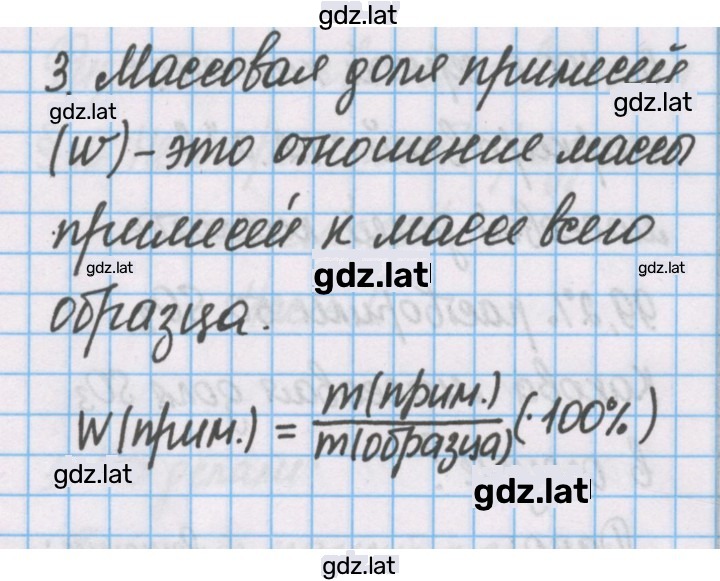 gdz.lat
3. Массовая доля примесей
gdz.lat
gdz.lat
(w) – это отношение массы
примесей к массе всего
gdz.lat
gdz.lat
gdz.lat
образца.
w(прим.) = m(прим.) / m(образца) (·100%)
gdz.lat
gdz.lat
gdz.lat